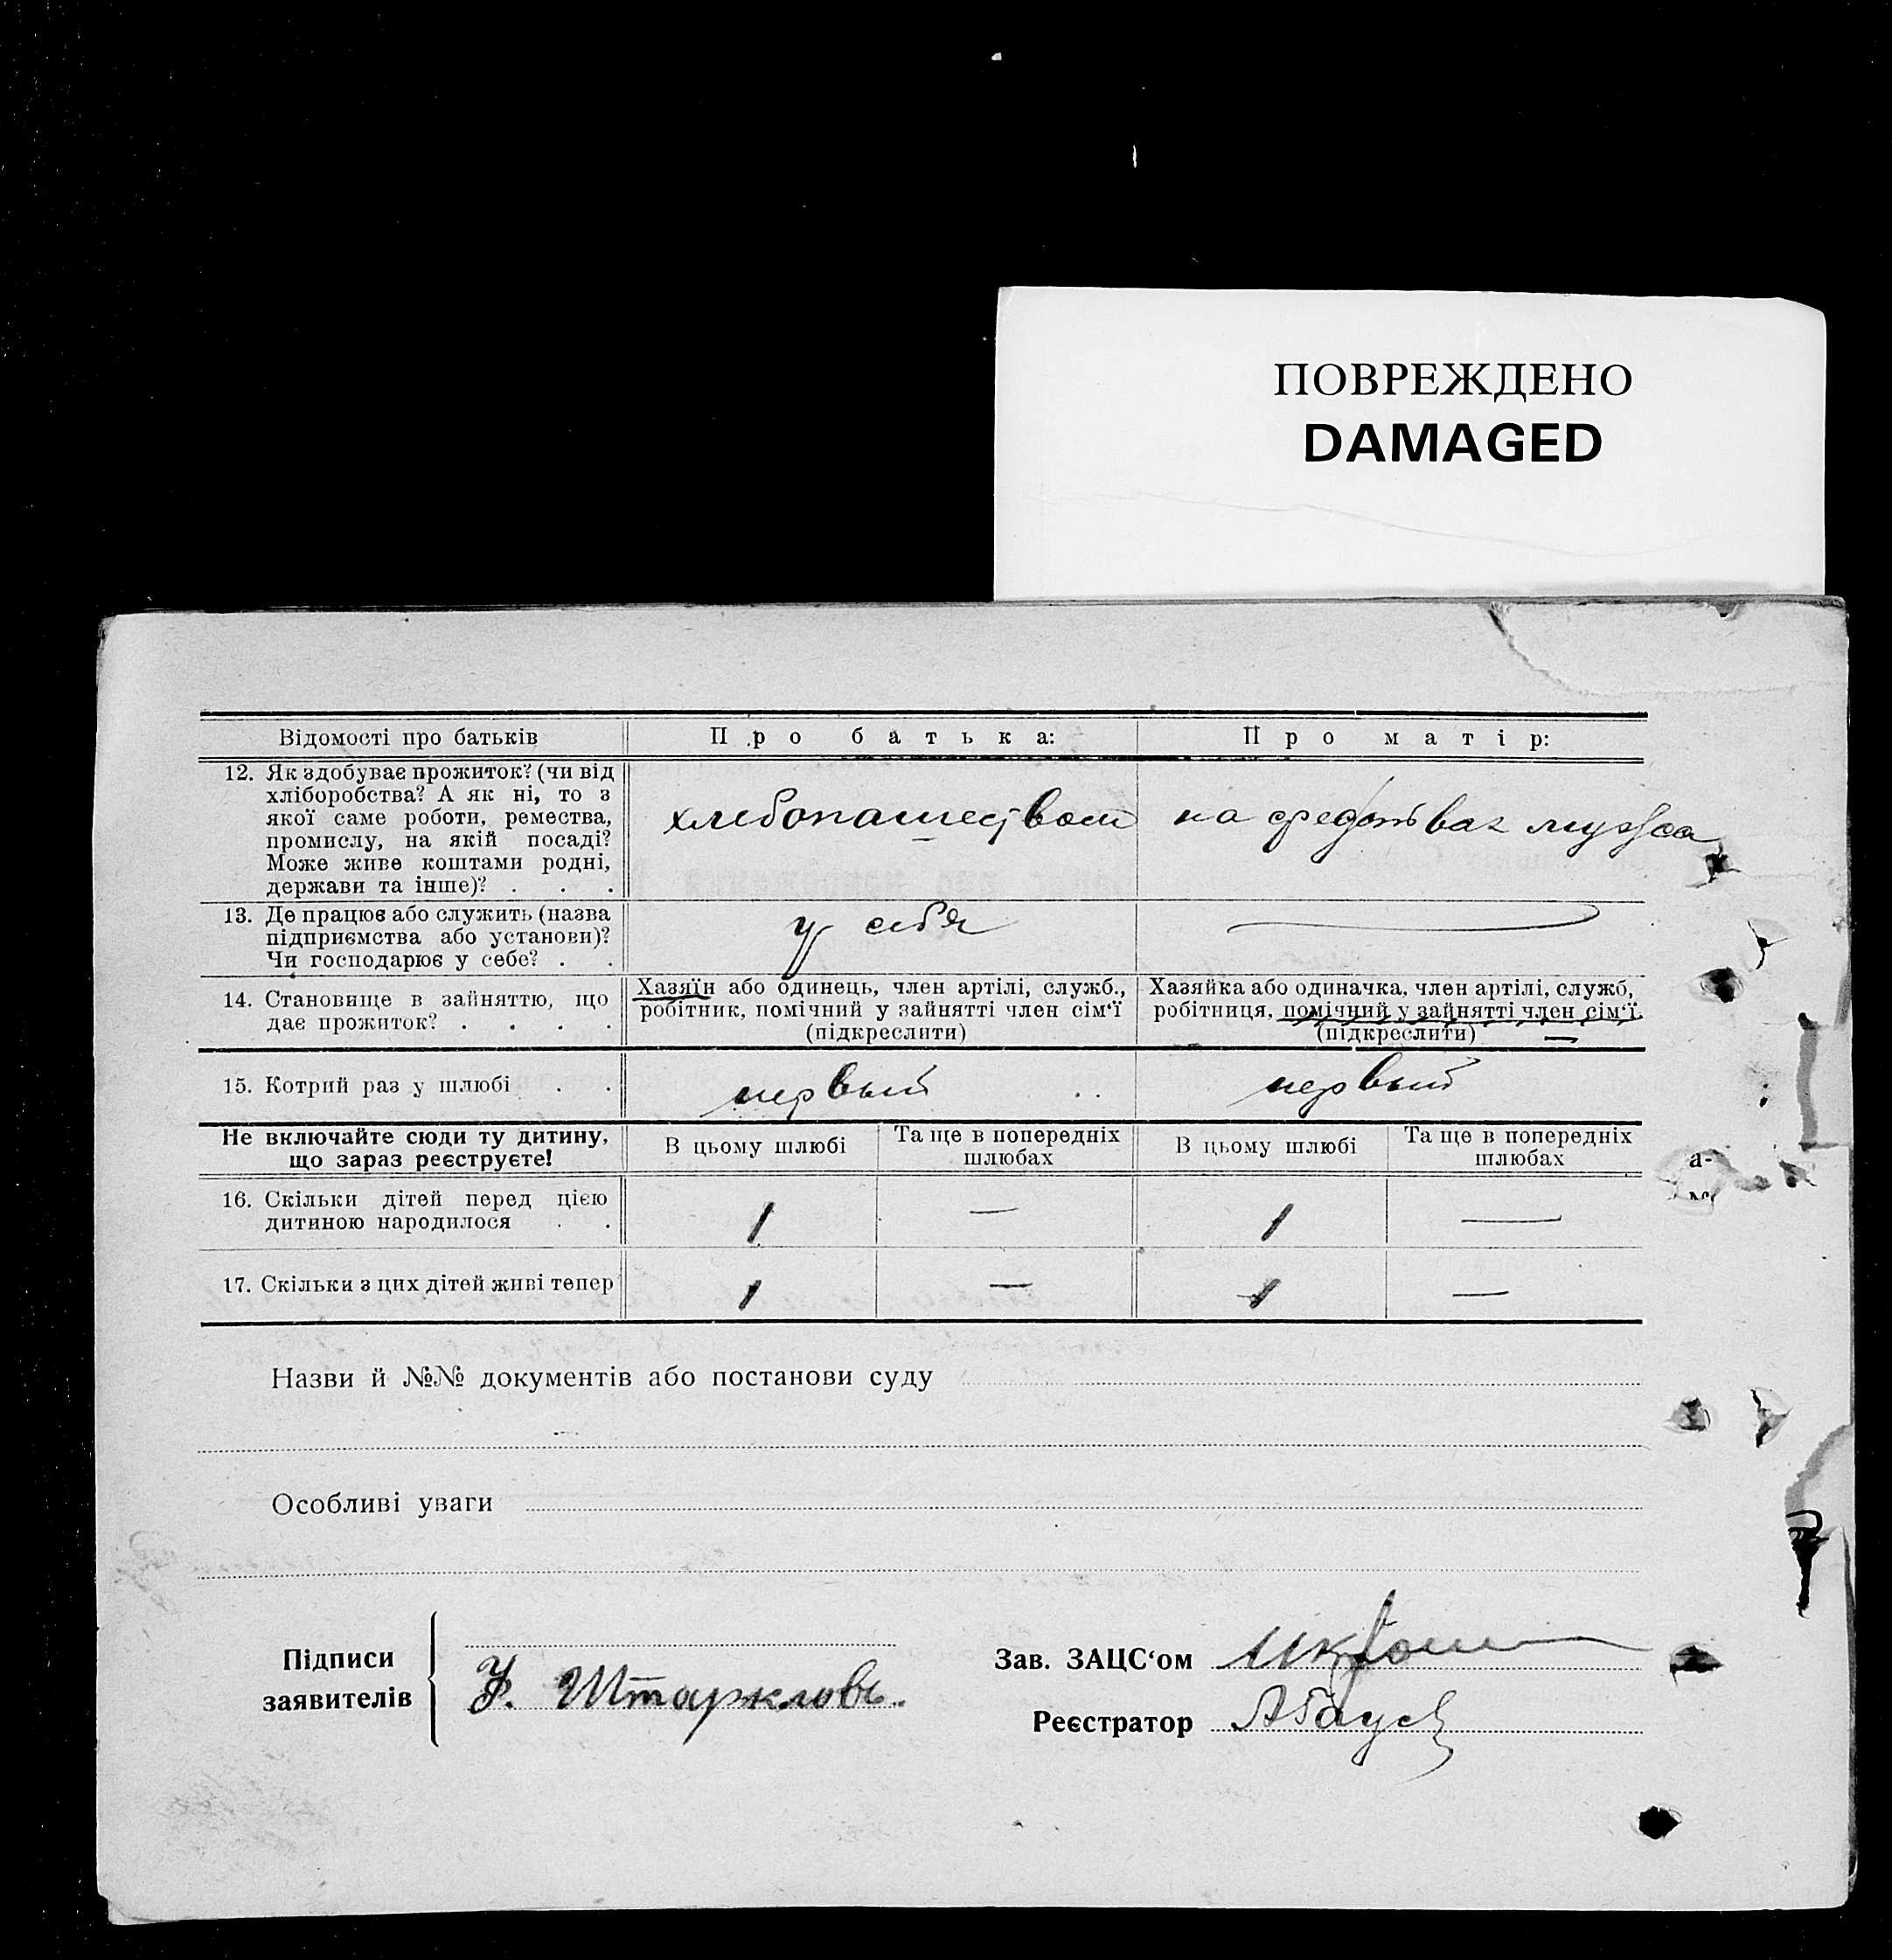 ПОВРЕЖДЕНО
DAMAGED
Відомості про батьків
Про батька:
Про матір:
12. Як здобуває прожиток? (чи від
хліборобства? А як ні, то з
якої саме роботи, ремества,
промислу, на якій посаді?
Може живе коштами родні,
держави та інше)? . . .
хлебопашеством
на средствах мужа
13. Де працює або служить (назва
підприємства або установи)?
Чи господарює у себе? . .
у себя
14. Становище в зайняттю, що
дає прожиток? . . . .
Хазяїн або одинець, член артілі, служб.,
робітник, помічний у зайнятті член сім'ї
(підкреслити)
Хазяйка або одиначка, член артілі, служб,
робітниця, помічний у зайнятті член сім'ї.
(підкреслити)
15. Котрий раз у шлюбі . .
первый
первый
Не включайте сюди ту дитину,
що зараз реєструєте!
В цьому шлюбі
Та ще в попередніх
шлюбах
В цьому шлюбі
Та ще в попередніх
шлюбах
а-
16. Скільки дітей перед цією
дитиною народилося . .
1
—
1
—
17. Скільки з цих дітей живі тепер
1
—
1
—
Назви й №№ документів або постанови суду
Особливі уваги
Підписи
заявителів
Зав. ЗАЦС'ом
Реєстратор